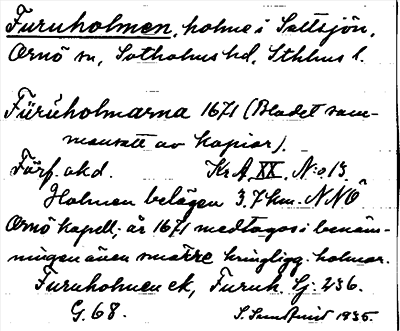 Furuholmen, holme i Saltsjön,
Ornö sn, Sotholms hd, Sthlms l.
Fŭrŭholmarna 1671 (Bladet sam-
mansatt av kopior).
Förf. okd. Kr A. XX. N:o 13.
Holmen belägen 3.7 km. NNÖ
Ornö kapell; är 1671 medtages i benäm-
ningen även smärre kringligg. holmar.
Furuholmen ek, Furuh. Sj. 236.
G. 68. S. Sundqvist 1935.